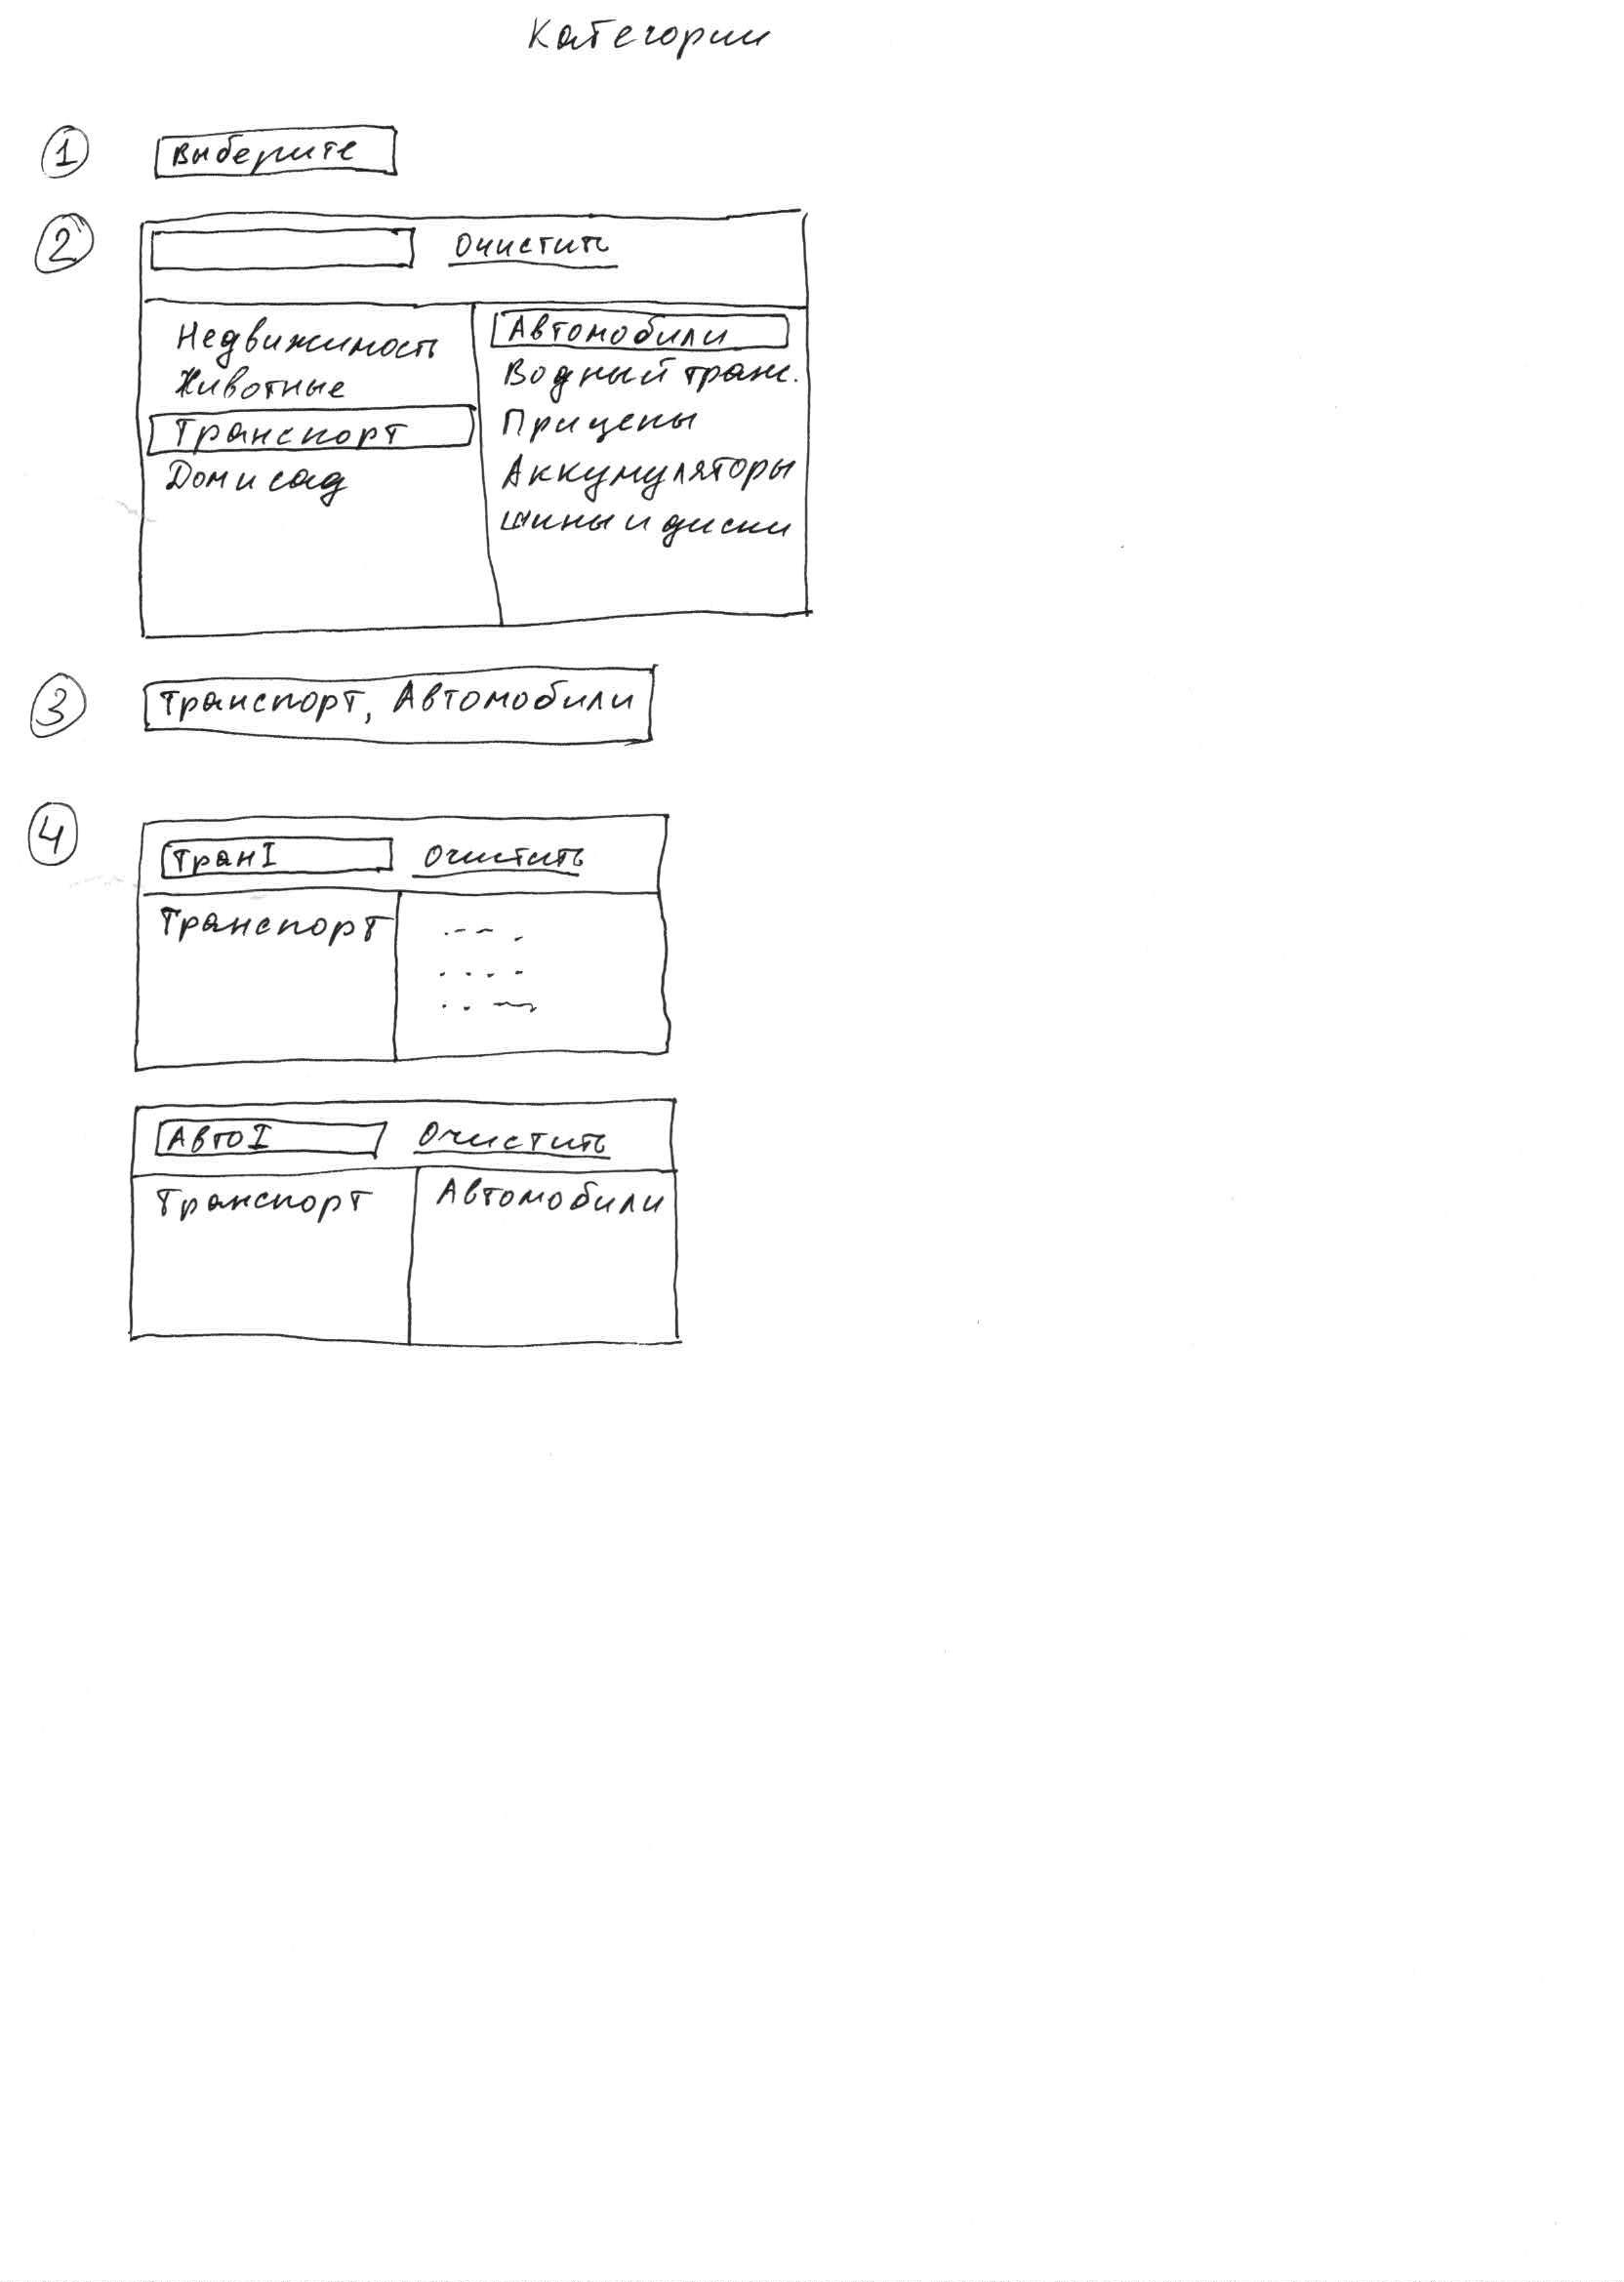 Категории
1 Выберите
2 Очистить
Недвижимость
Животные
Транспорт
Дом и сад
Автомобили
Водный транс.
Прицепы
Аккумуляторы
Шины и диски
3 Транспорт, Автомобили
4 Тран Очистить
Транспорт
Авто Очистить
Транспорт Автомобили